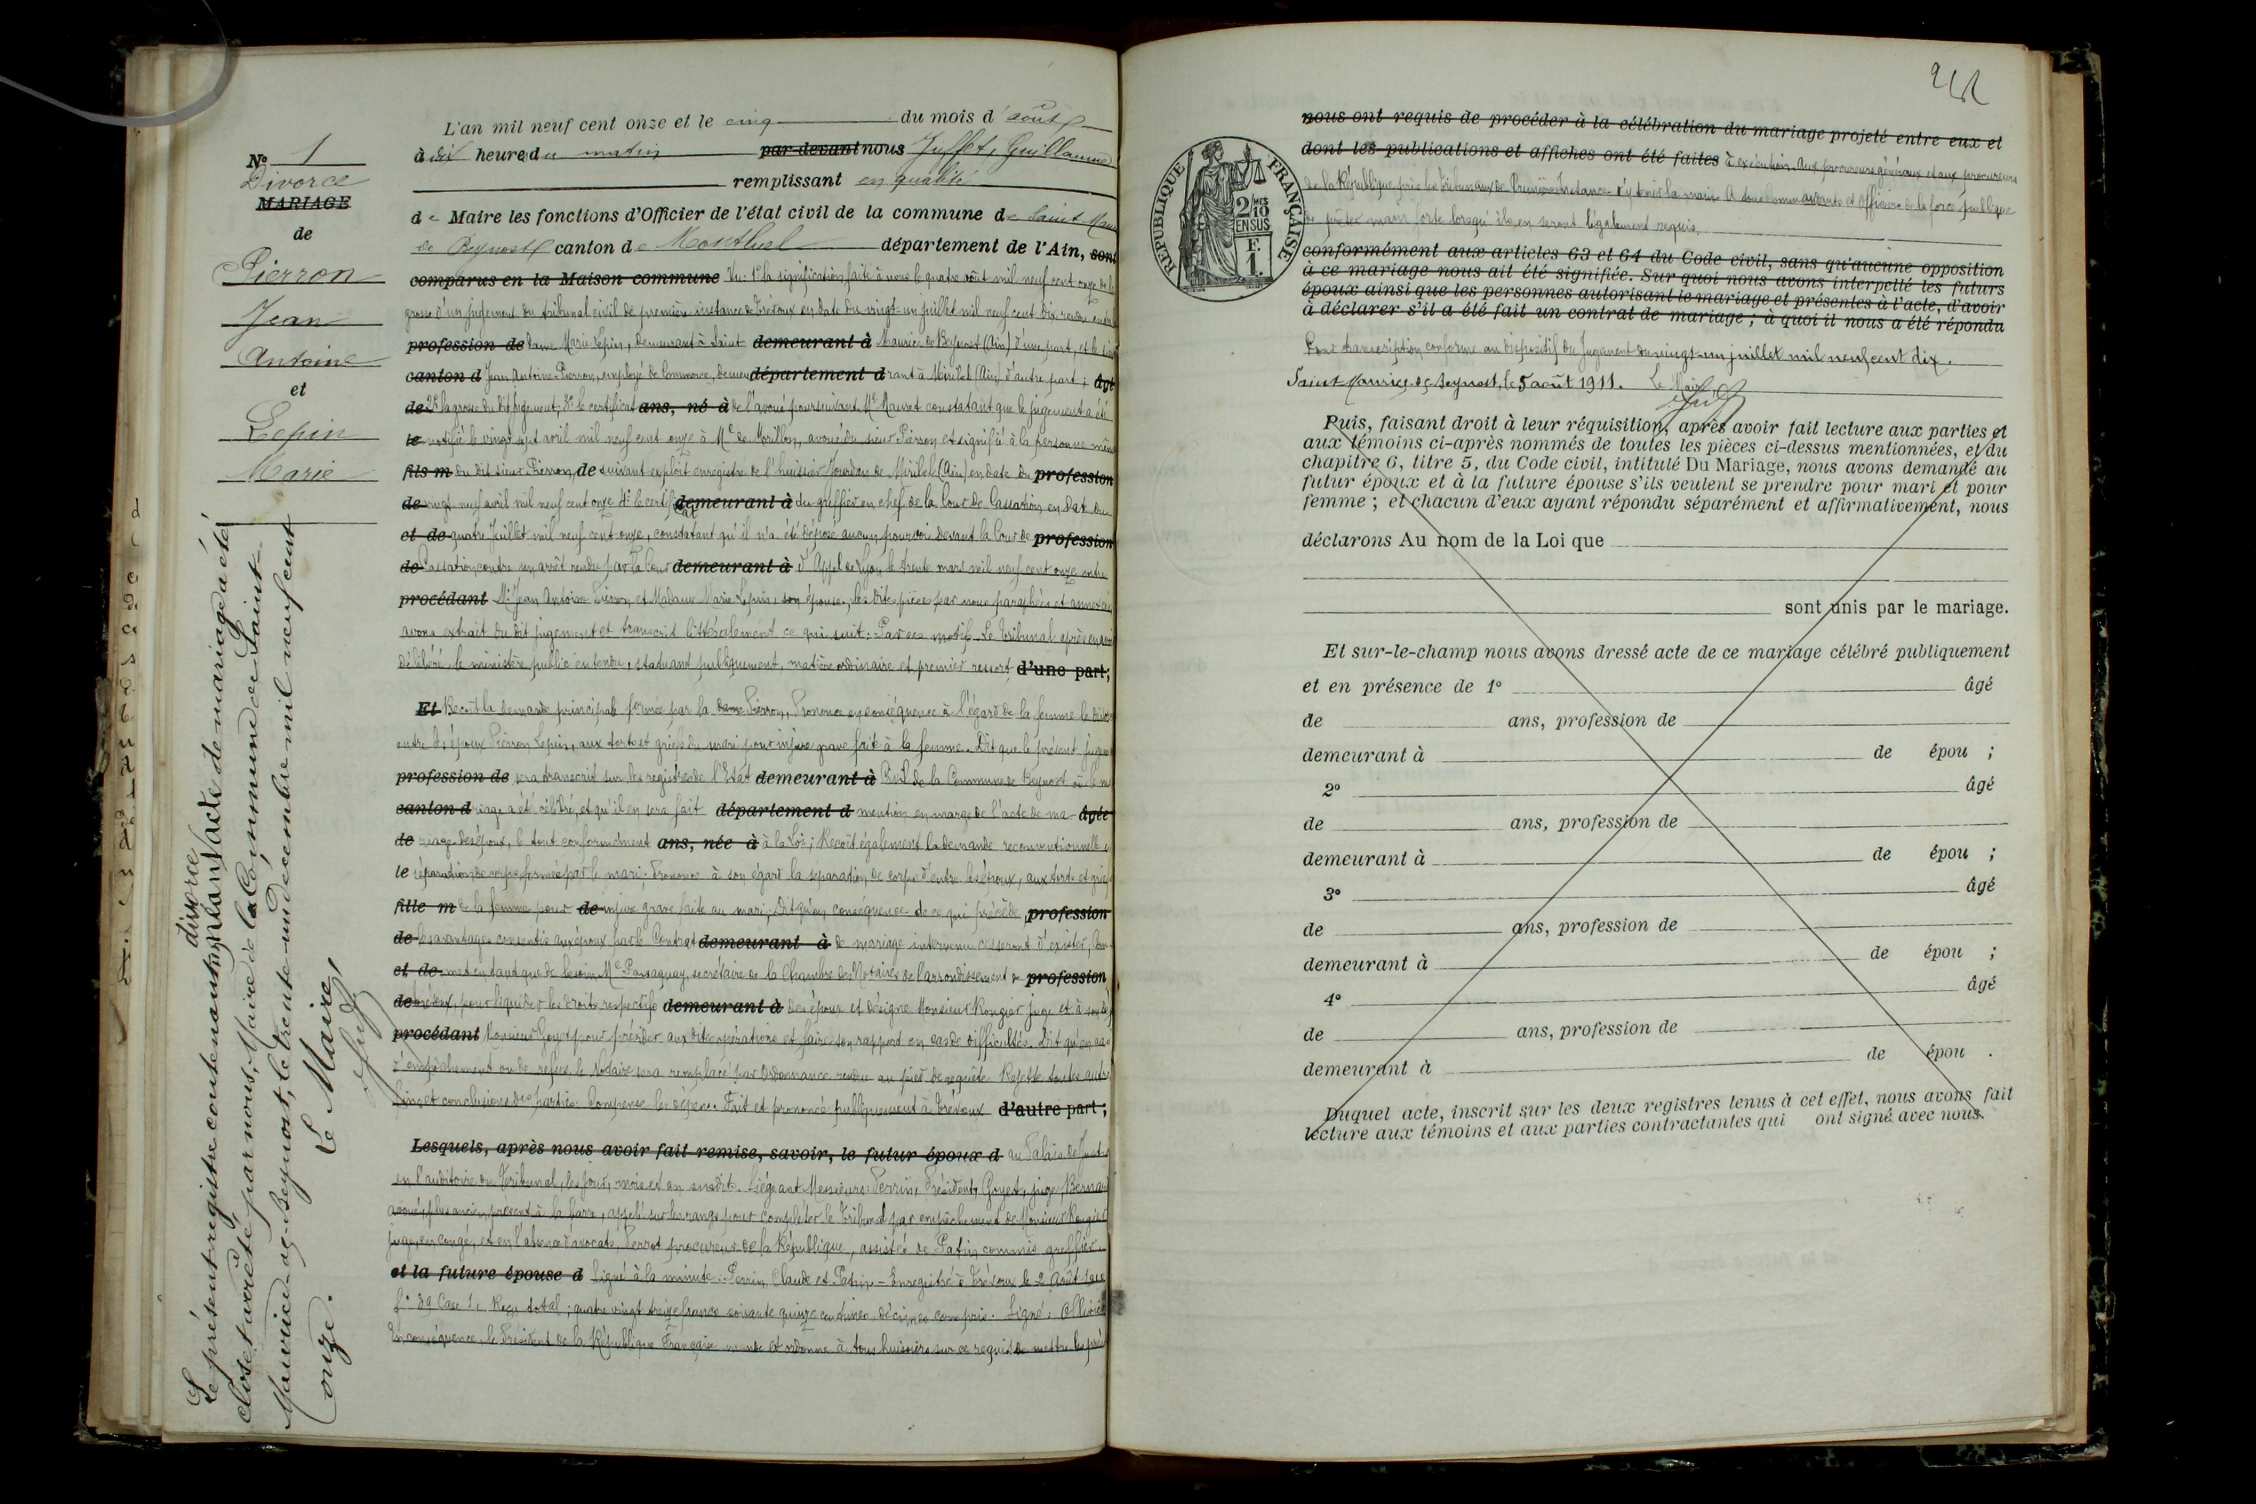 N° 1
Divorce
MARIAGE
de
Pierron
Jean
Antoine
et
Lepin
Marie
L'an mil neuf cent onze et le cinq du mois d'août
à dix heure du matin par-devant nous Juffet, Guillaume
remplissant en qualité
de Maire les fonctions d'Officier de l'état civil de la commune de Saint Mau
de Beynost canton de Montluel département de l'Ain, sont
comparus en la Maison commune Vu: 1° la signification faite à nous le quatre août mil neuf cent onze de la
grosse d'un jugement du tribunal civil de première instance de Trévoux en date du vingt-un juillet mil neuf cent dix rendu entre
profession de Dame Marie Lepin, demeurant à Saint demeurant à Maurice de Beynost (Ain) d'une part, et le sieur
canton d Jean Antoine Pierron, employé de Commerce, demeu département d rant à Miribel (Ain) d'autre part; âgé
de 2° la grosse du dit jugement; 3° le certificat ans, né à de l'avoué poursuivant Me Mauret constatant que le jugement a été
le notifié le vingt sept avril mil neuf cent onze à Me de Morillon, avoué du sieur Pierron et signifié à la personne même
fils m du dit sieur Pierron, de suivant exploit enregistré de l'huissier Jourdan de Miribel (Ain) en date du profession
de vingt neuf avril mil neuf cent onze 4° le certificat demeurant à du greffier en chef de la Cour de Cassation en date du
et de quatre Juillet mil neuf cent onze, constatant qu'il n'a été déposé aucun pourvoi devant la Cour de profession
de Cassation contre un arrêt rendu par la Cour demeurant à d'Appel de Lyon le trente mars mil neuf cent onze entre
procédant Mr Jean Antoine Pierron et Madame Marie Lepin, son épouse, les dites pièces par nous paraphées et annexées
avons extrait du dit jugement et transcrit littéralement ce qui suit: Par ces motifs Le Tribunal après en avoir
délibéré, le ministère public entendu, statuant publiquement, matière ordinaire et premier ressort d'une part;
Et Reçoit la demande principale formée par la dame Pierron, Prononce en conséquence à l'égard de la femme le divorce
entre les époux Pierron Lepin, aux torts et griefs du mari pour injure grave faite à la femme. Dit que le présent jugem
profession de sera transcrit sur les registres de l'Etat demeurant à Civil de la Commune de Beynost où le ma
canton d riage a été célébré, et qu'il en sera fait département d mention en marge de l'acte de ma- âgée
de riage des époux, le tout conformément ans, née à à la Loi; Reçoit également la demande reconventionnelle en
le séparation de corps formée par le mari; Prononce à son égard la séparation de corps d'entre les époux, aux torts et griefs
fille m de la femme pour de injure grave faite au mari; Dit qu'en conséquence de ce qui précède, profession
de les avantages consentis aux époux par le Contrat demeurant à de mariage intervenu cesseront d'exister, Com-
et de met en tant que de besoin Me Passaguay, secrétaire de la Chambre des Notaires de l'arrondissement de profession
de Trévoux, pour liquider les droits respectifs demeurant à des époux et désigne Monsieur Rougier juge et à son dé
procédant Monsieur Goyet pour présider aux dites opérations et faire son rapport en cas de difficultés. Dit qu'en cas
d'empêchement ou de refus le Notaire sera remplacé par Ordonnance rendue au pied de requête Rejette toutes autres
fins et conclusions des parties. Compense les dépens. Fait et prononcé publiquement à Trévoux d'autre part;
Lesquels, après nous avoir fait remise, savoir, le futur époux d au Palais de Justice
en l'auditoire du Tribunal, les jour, mois et an susdits. Siégeant Messieurs: Perrin, Président, Goyet, juge, Bernard
avoué, plus ancien, présent à la barre, appelé sur les rangs pour compléter le Tribunal par empêchement de Monsieur Rougier
juge, en congé, et en l'absence d'avocats, Perrot procureur de la République, assistés de Patin commis greffier.
et la future épouse d Signé à la minute: Perrin, Claude et Patin - Enregistré à Trévoux le 2 Août 1910
Case Reçu total; quatre vingt treize francs soixante quinze centimes décimes compris. Signé: Ollivier
En conséquence, le Président de la République Française mande et ordonne à tous huissiers sur ce requis de mettre les prés
divorce
Le présent registre contenant un acte de mariage a été
clos et arrêté, par nous, Maire de la Commune de Saint
Maurice-de-Beynost, le trente-un décembre mil neuf cent
onze. Le Maire,
nous ont requis de procéder à la célébration du mariage projeté entre eux et
dont les publications et affiches ont été faites à exécution. Aux procureurs généraux et aux procureurs
de la République près les Tribunaux de Première Instance d'y tenir la main A tous Commandants et Officiers de la force publique
de prêter main forte lorsqu'ils en seront légalement requis.
conformément aux articles 63 et 64 du Code civil, sans qu'aucune opposition
à ce mariage nous ait été signifiée. Sur quoi nous avons interpellé les futurs
époux ainsi que les personnes autorisant le mariage et présentes à l'acte, d'avoir
à déclarer s'il a été fait un contrat de mariage; à quoi il nous a été répondu
Pour transcription conforme au dispositif du Jugement du vingt-un juillet mil neuf cent dix.
Saint-Maurice-de-Beynost, le 5 août 1911. Le Maire
RÉPUBLIQUE FRANÇAISE
2/10
EN SUS
F.
1.
Puis, faisant droit à leur réquisition, après avoir fait lecture aux parties et
aux témoins ci-après nommés de toutes les pièces ci-dessus mentionnées, et du
chapitre 6, titre 5, du Code civil, intitulé Du Mariage, nous avons demandé au
futur époux et à la future épouse s'ils veulent se prendre pour mari et pour
femme; et chacun d'eux ayant répondu séparément et affirmativement, nous
déclarons Au nom de la Loi que
sont unis par le mariage.
Et sur-le-champ nous avons dressé acte de ce mariage célébré publiquement
et en présence de 1° âgé
de ans, profession de
demeurant à de épou ;
2° âgé
de ans, profession de
demeurant à de épou ;
3° âgé
de ans, profession de
demeurant à de épou ;
4° âgé
de ans, profession de
demeurant à de épou .
Duquel acte, inscrit sur les deux registres tenus à cet effet, nous avons fait
lecture aux témoins et aux parties contractantes qui ont signé avec nous.